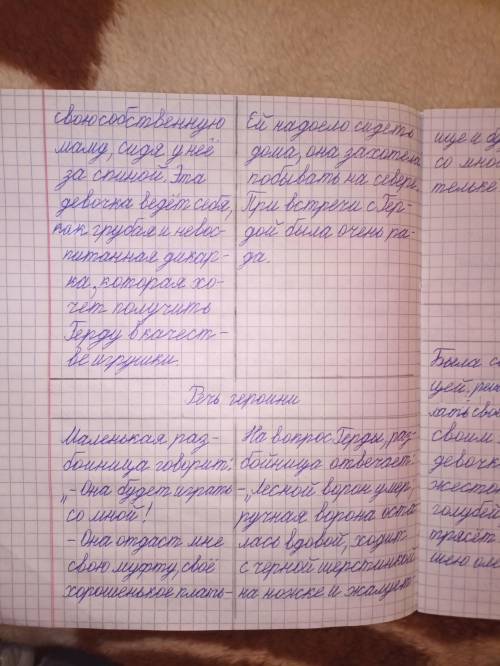 свою собственную
маму, сидя у неё
за спиной. Эта
девочка ведёт себя,
как грубая и невос-
питанная дикар-
ка, которая хо-
чет получить
Герду в качест-
ве игрушки.
Ей надоело сидеть
дома, она захотела
побывать на севере.
При встречи с Гер-
дой была очень ра-
да.
Речь героини
Маленькая раз-
бойница говорит:
„- Она будет играть
со мной!
- Она отдаст мне
свою муфту, своё
хорошенькое плать-
На вопрос Герды, раз-
бойница отвечает:
-„Лесной ворон умер,
ручная ворона оста-
лась вдовой, ходит
с чёрной шерстинкой
на ножке и жалует-
со мно
тельке
Была с
щей, ри
лать своё
своим
девочк
жесто
голубей
трясёт
шею оле